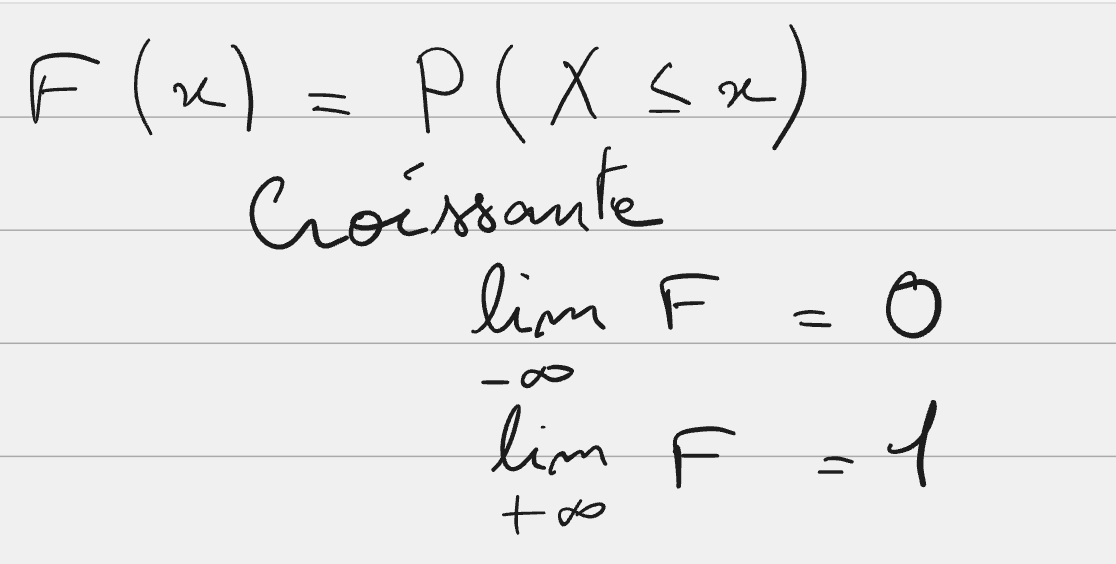 F(x) = P(X ≤ x)
Croissante
lim F = 0
-∞
lim F = 1
+∞